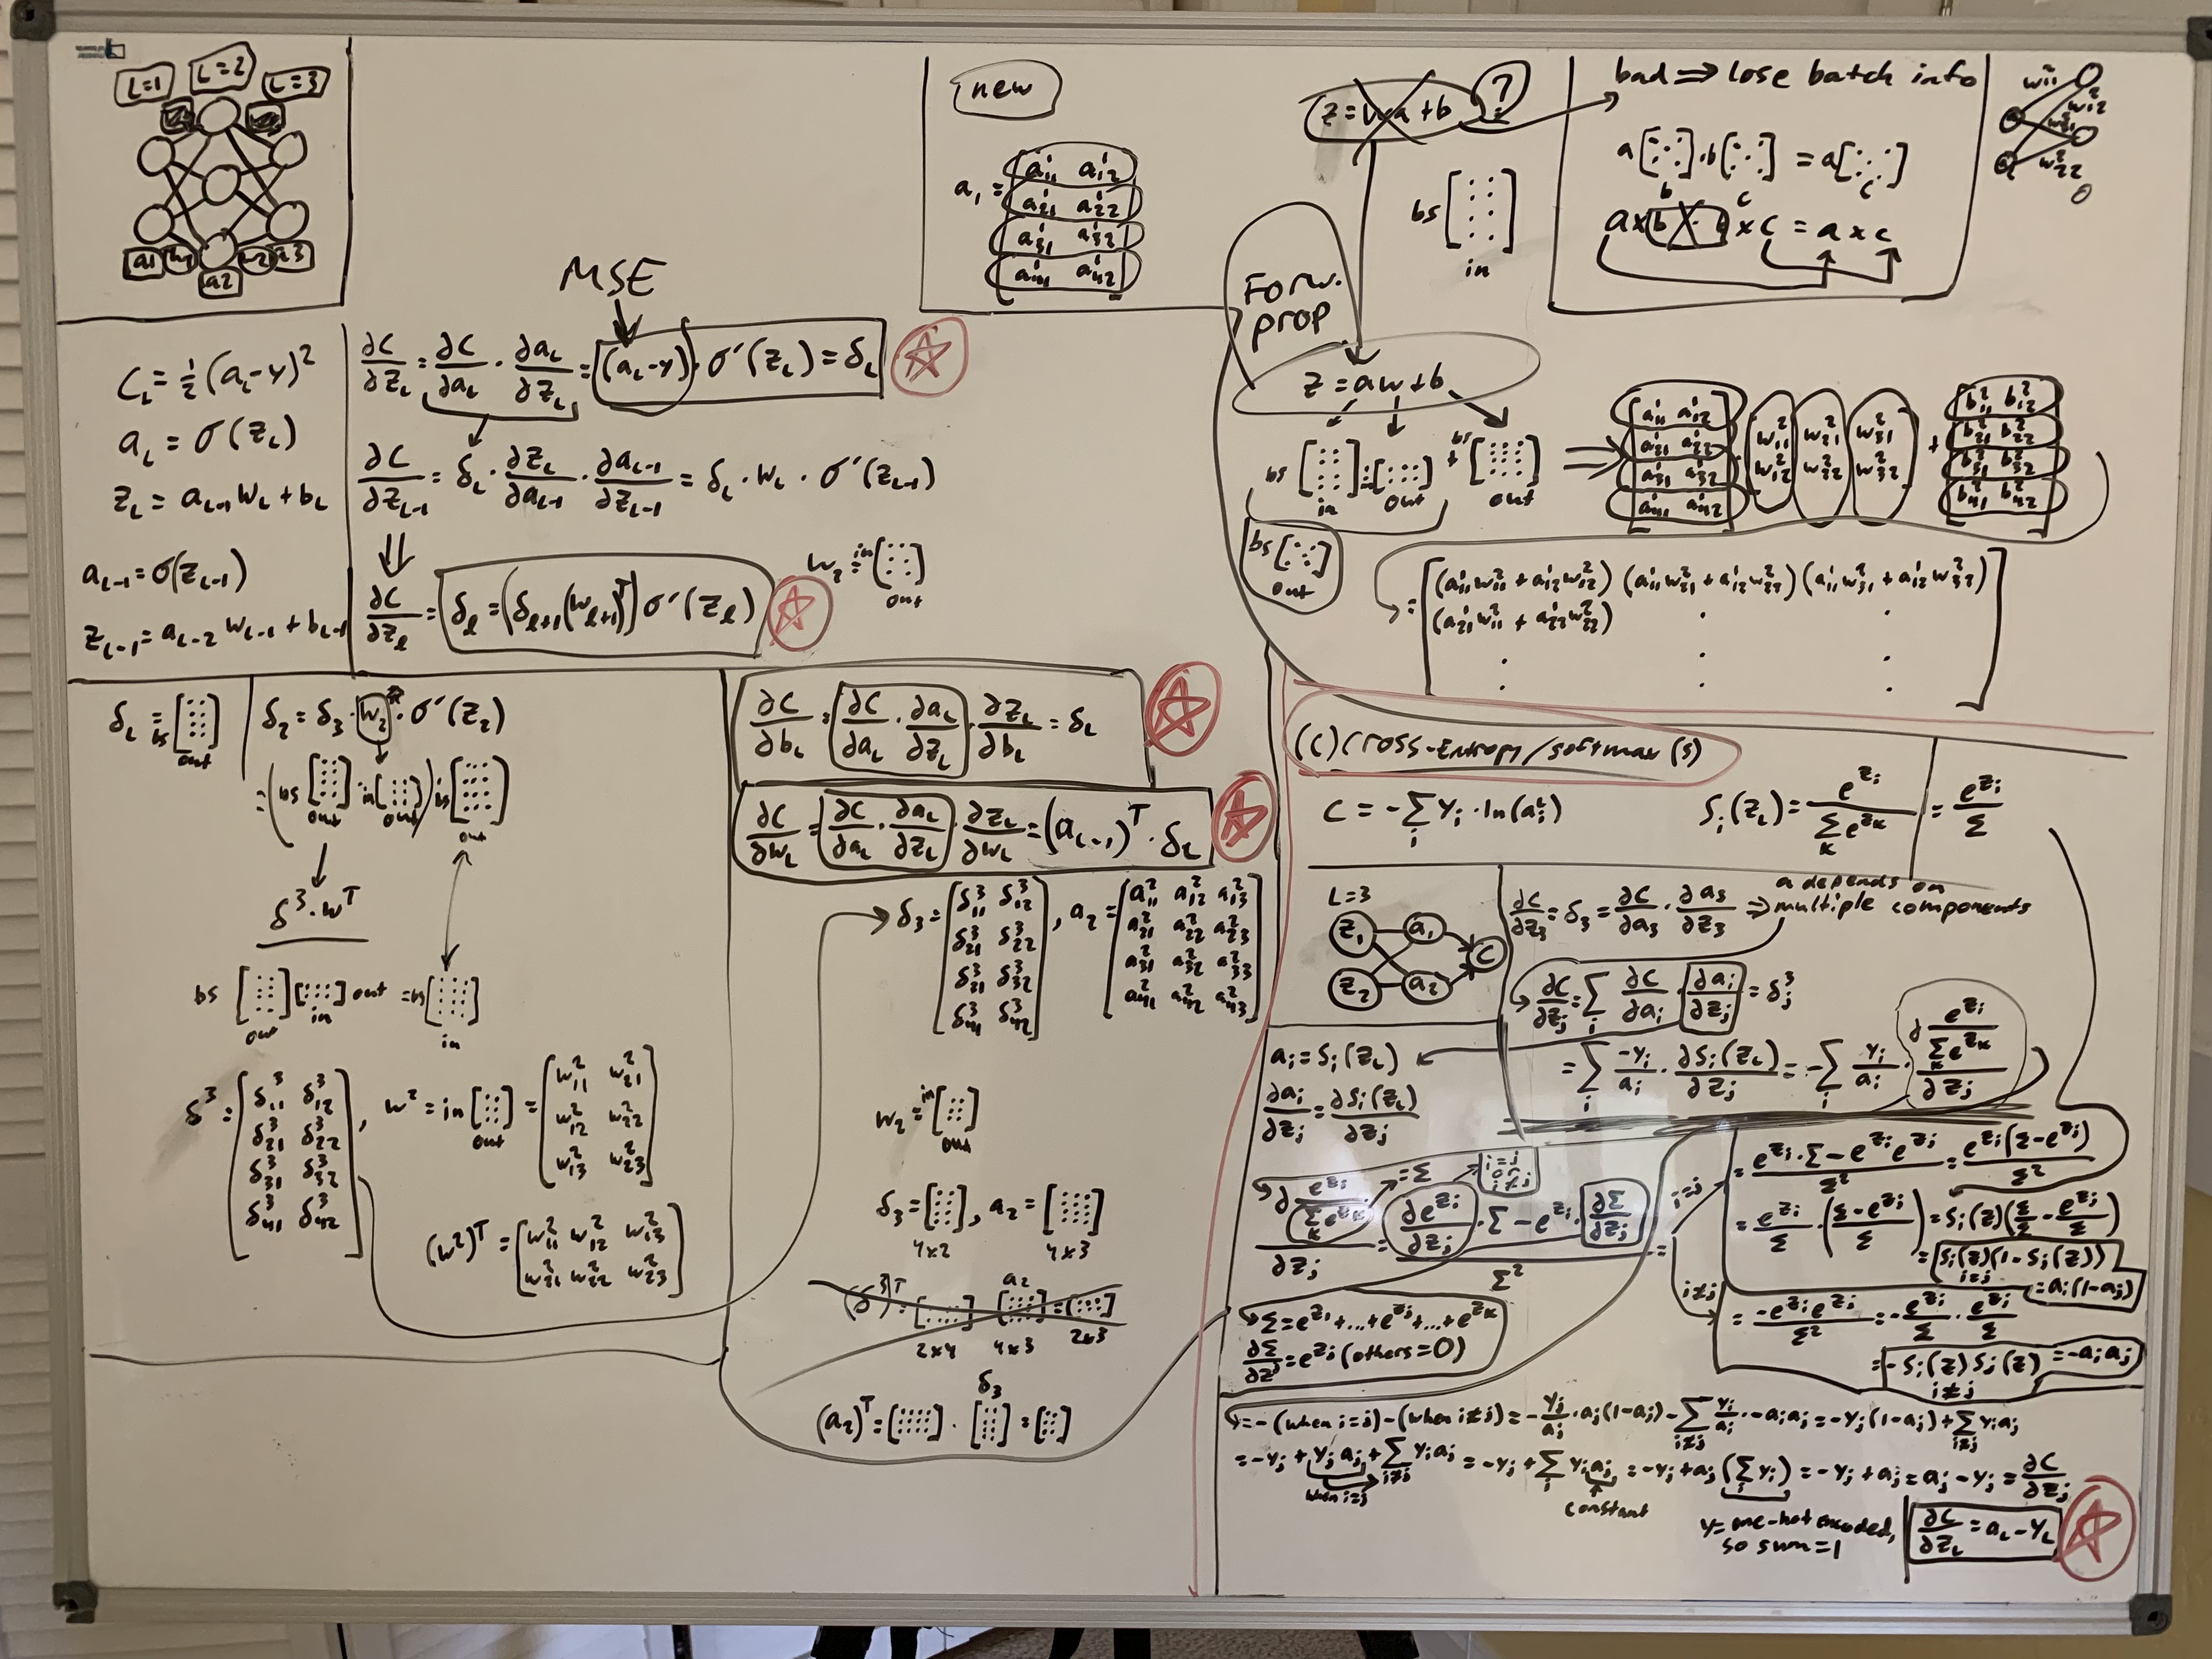 L=1 L=2 L=3
a1 w1 a2 w2 a3
C_L = ½(a_L-y)²
a_L = σ(z_L)
z_L = a_{L-1} w_L + b_L
a_{L-1} = σ(z_{L-1})
z_{L-1} = a_{L-2} w_{L-1} + b_{L-1}
MSE
∂C/∂z_L = ∂C/∂a_L · ∂a_L/∂z_L = (a_L-y) · σ'(z_L) = δ_L
∂C/∂z_{L-1} = δ_L · ∂z_L/∂a_{L-1} · ∂a_{L-1}/∂z_{L-1} = δ_L · w_L · σ'(z_{L-1})
∂C/∂z_ℓ = δ_ℓ = (δ_{ℓ+1}(w_{ℓ+1})^T) σ'(z_ℓ)
w_2 = in [ ] out
new
a_1 = [a¹₁₁ a¹₁₂
a¹₂₁ a¹₂₂
a¹₃₁ a¹₃₂
a¹₄₁ a¹₄₂]
z = wa + b ?
bs [ ] in
bad ⇒ lose batch info
a [ ] b · b [ ] c = a [ ] c
a x b · b x c = a x c
w²₁₁
w²₁₂
w²₂₁
w²₂₂
Forw. prop
z = aw + b
bs [ ] in · in [ ] out + bs [ ] out
bs [ ] out
⇒ [a¹₁₁ a¹₁₂
a¹₂₁ a¹₂₂
a¹₃₁ a¹₃₂
a¹₄₁ a¹₄₂]
w²₁₁ w²₂₁ w²₃₁
w²₁₂ w²₂₂ w²₃₂
+ [b²₁₁ b²₁₂
b²₂₁ b²₂₂
b²₃₁ b²₃₂
b²₄₁ b²₄₂]
= [(a¹₁₁w²₁₁ + a¹₁₂w²₁₂) (a¹₁₁w²₂₁ + a¹₁₂w²₂₂) (a¹₁₁w²₃₁ + a¹₁₂w²₃₂)
(a¹₂₁w²₁₁ + a¹₂₂w²₂₂) .
. . .
. . .]
δ_L = bs [ ] out
δ_2 = δ_3 · w_2 · σ'(z_2)
= (bs [ ] out · in [ ] out) bs [ ] out
δ³ · w^T
bs [ ] out [ ] in out = bs [ ] in
δ³ = [δ³₁₁ δ³₁₂
δ³₂₁ δ³₂₂
δ³₃₁ δ³₃₂
δ³₄₁ δ³₄₂]
, w² = in [ ] out = [w²₁₁ w²₂₁
w²₁₂ w²₂₂
w²₁₃ w²₂₃]
(w²)^T = [w²₁₁ w²₁₂ w²₁₃
w²₂₁ w²₂₂ w²₂₃]
∂C/∂b_L = ∂C/∂a_L · ∂a_L/∂z_L · ∂z_L/∂b_L = δ_L
∂C/∂w_L = ∂C/∂a_L · ∂a_L/∂z_L · ∂z_L/∂w_L = (a_{L-1})^T · δ_L
δ_3 = [δ³₁₁ δ³₁₂
δ³₂₁ δ³₂₂
δ³₃₁ δ³₃₂
δ³₄₁ δ³₄₂]
, a_2 = [a²₁₁ a²₁₂ a²₁₃
a²₂₁ a²₂₂ a²₂₃
a²₃₁ a²₃₂ a²₃₃
a²₄₁ a²₄₂ a²₄₃]
w_2 = in [ ] out
δ_3 = [ ] 4x2, a_2 = [ ] 4x3
(δ³)^T = [ ] 2x4 a_2 [ ] 4x3 = [ ] 2x3
(a_2)^T = [ ] · δ_3 [ ] = [ ]
(C) Cross-Entropy/softmax (S)
C = -Σ_i y_i · ln(a_i^L)
S_i(z_L) = e^{z_i}/Σ_k e^{z_k} = e^{z_i}/Σ
L=3
z_1 a_1
z_2 a_2
C
∂C/∂z_3 = δ_3 = ∂C/∂a_3 · ∂a_3/∂z_3 ⇒ a depends on multiple components
∂C/∂z_j = Σ_i ∂C/∂a_i · ∂a_i/∂z_j = δ³_j
= Σ_i -y_i/a_i · ∂S_i(z_L)/∂z_j = -Σ_i y_i/a_i · ∂(e^{z_i}/Σ_k e^{z_k})/∂z_j
a_i = S_i(z_L)
∂a_i/∂z_j = ∂S_i(z_L)/∂z_j
∂(e^{z_i}/Σ_k e^{z_k})/∂z_j = (∂e^{z_i}/∂z_j · Σ - e^{z_i} · ∂Σ/∂z_j)/Σ² =
= Σ
i=j or i≠j
Σ = e^{z_1}+...+e^{z_j}+...+e^{z_k}
∂Σ/∂z_j = e^{z_j} (others = 0)
i=j
= (e^{z_i} · Σ - e^{z_i} e^{z_j})/Σ² = e^{z_i}(Σ-e^{z_j})/Σ²
= e^{z_i}/Σ · ((Σ-e^{z_j})/Σ) = S_i(z)(Σ/Σ - e^{z_j}/Σ)
= S_i(z)(1-S_j(z)) i=j
= a_i(1-a_j)
i≠j
= -e^{z_i}e^{z_j}/Σ² = -e^{z_i}/Σ · e^{z_j}/Σ
= -S_i(z)S_j(z) i≠j = -a_i a_j
= -(when i=j) - (when i≠j) = -y_j/a_j · a_j(1-a_j) - Σ_{i≠j} y_i/a_i · -a_i a_j = -y_j(1-a_j) + Σ_{i≠j} y_i a_j
= -y_j + y_j a_j + Σ_{i≠j} y_i a_j = -y_j + Σ_i y_i a_j = -y_j + a_j (Σ_i y_i) = -y_j + a_j = a_j - y_j = ∂C/∂z_j
when i=j
constant
y = one-hot encoded, so sum = 1
∂C/∂z_L = a_L - y_L